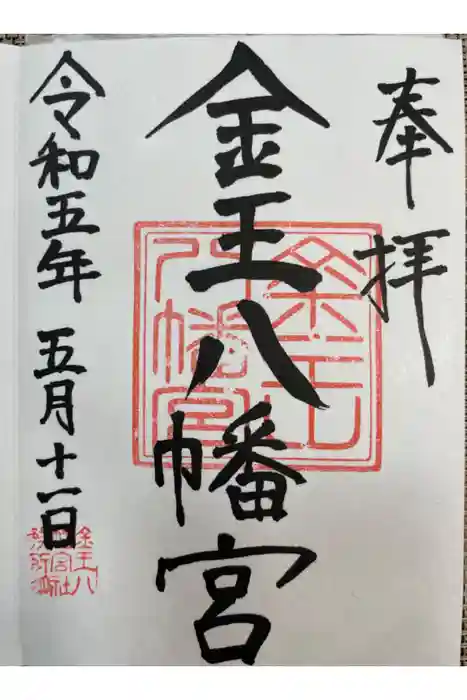 奉拝
金王八幡宮
金王
八幡宮
令和五年 五月十一日
金王八
幡宮社
務所